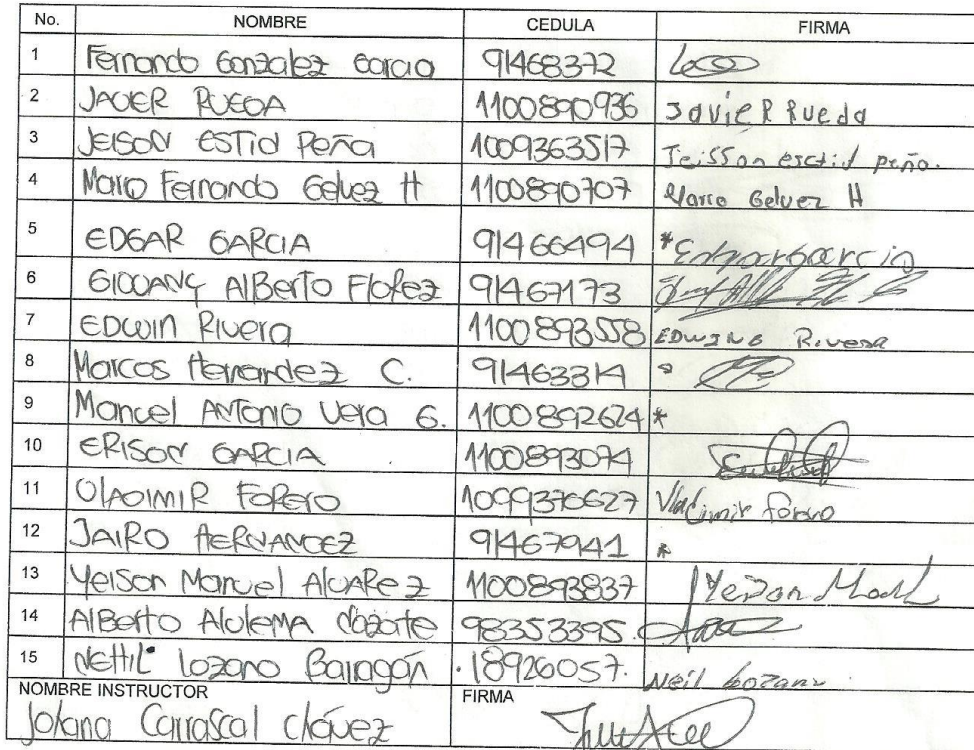 No. NOMBRE CEDULA FIRMA
1 Fernando Gonzalez Garcia 91468372
2 JAVIER RUEDA 1100890936 Javier Rueda
3 JEISON ESTID Peña 1009363517 Jeisson esctid peña.
4 Mario Fernando Gelvez H 1100890707 Mario Gelvez H
5 EDGAR GARCIA 91466494 *Edgar Garcia
6 GIOVANY AlBerto Florez 91467173
7 EDWIN Rivera 1100893558 EDWING Rivera
8 Marcos Hernandez C. 91463314
9 Manuel ANTONIO Vera G. 1100892624 *
10 ERISON GARCIA 1100893074
11 VlADIMIR FORERO 1099370627 Vladimir forero
12 JAIRO HERNANDEZ 91467941 *
13 Yeison Manuel AlvARez 1100893837 Yeison
14 AlBerto AlulEMA 98353395.
15 NEHIL lozano Barragán .18926057. Neil Lozano
NOMBRE INSTRUCTOR FIRMA
Johana Carrascal chávez